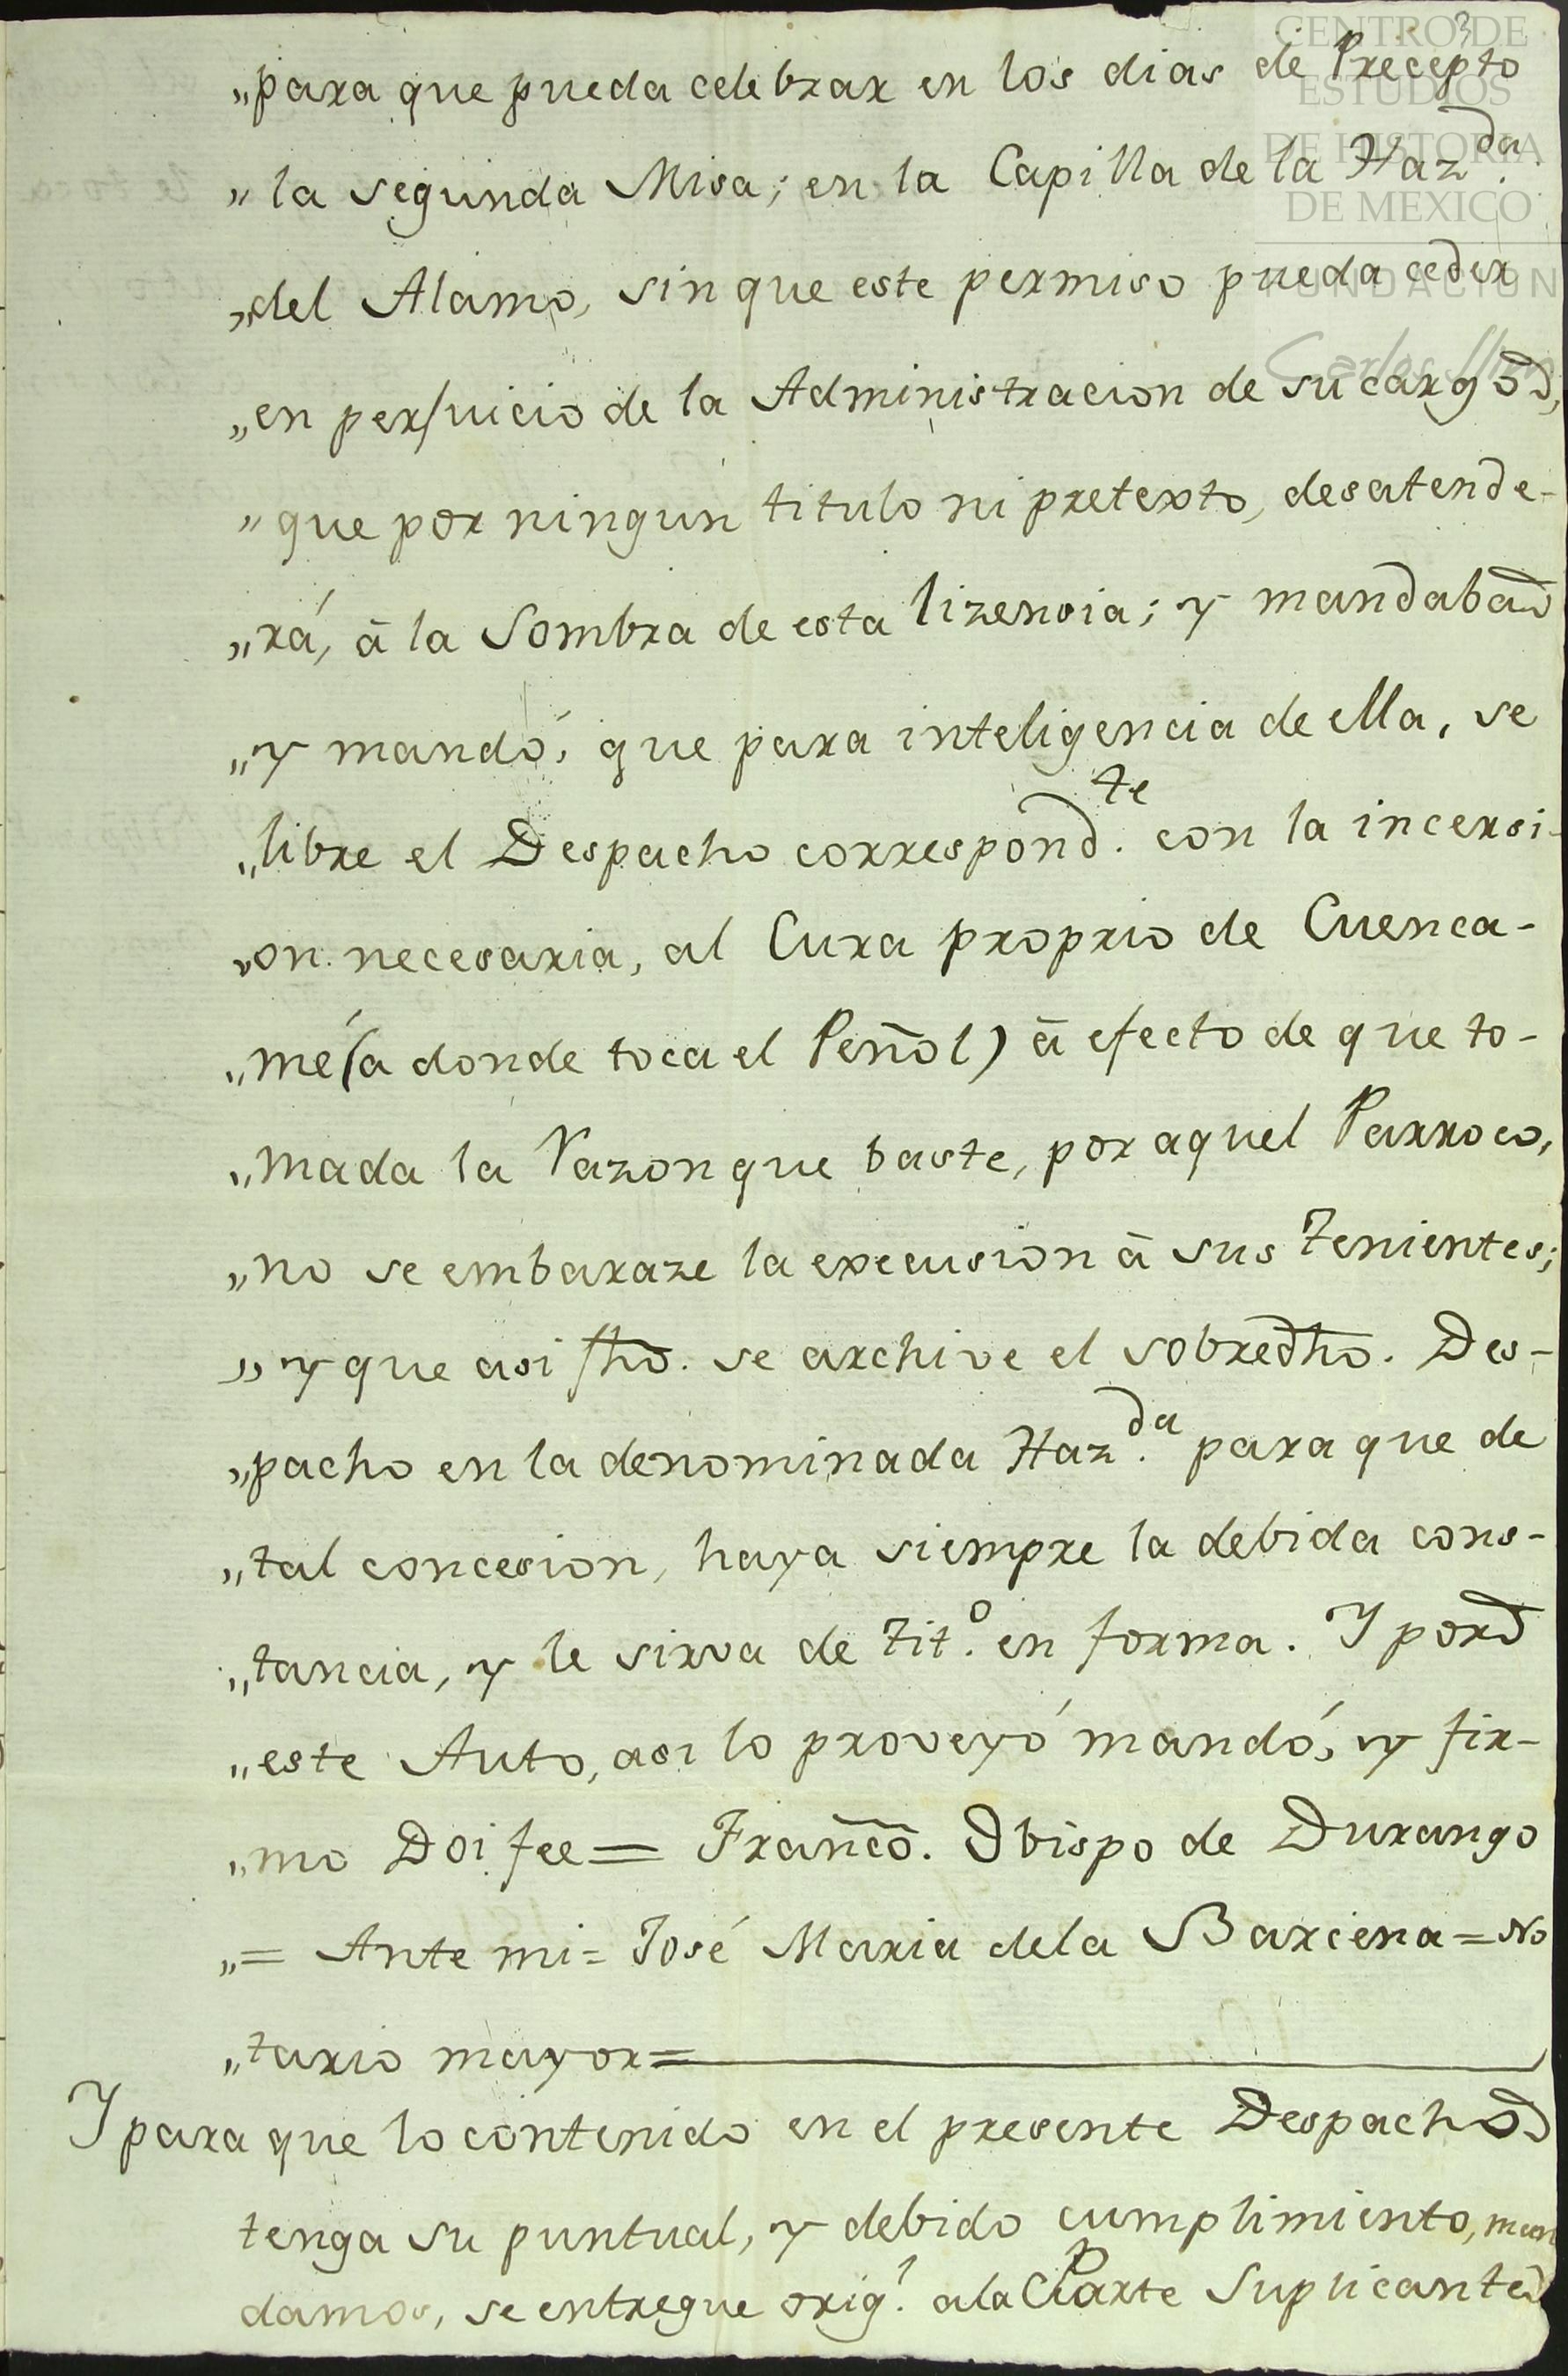 3
CENTRO DE
ESTUDIOS
DE HISTORIA
DE MEXICO
FUNDACION
Carlos Slim
„para que pueda celebrar en los dias de Precepto
„la segunda Misa; en la Capilla de la Haz.da
„del Alamo, sin que este permiso pueda ceder
„en perjuicio de la Administracion de su cargo,
„que por ningun titulo ni pretexto, desatende-
„rá, â la Sombra de esta lizensia; y mandaba
„y mandó, que para inteligencia de ella, se
„libre el Despacho correspond.te con la incersi-
„on necesaria, al Cura proprio de Cuenca-
„mé (a donde toca el Peñol) â efecto de que to-
„mada la Razon que baste, por aquel Parroco,
„no se embaraze la execusion â sus Tenientes;
„y que asi fho. se archive el sobredho. Des-
„pacho en la denominada Haz.da para que de
„tal concesion, haya siempre la debida cons-
„tancia, y le sirva de Tit.o en forma. Y por
„este Auto, asi lo proveyó mandó, y fir-
„mo Doi fee = Franco. Obispo de Durango
„= Ante mi = José Maria de la Barcena = No
„tario mayor =
Y para que lo contenido en el presente Despacho
tenga su puntual, y debido cumplimiento, man
damos, se entregue orig.l a la Parte Suplicante